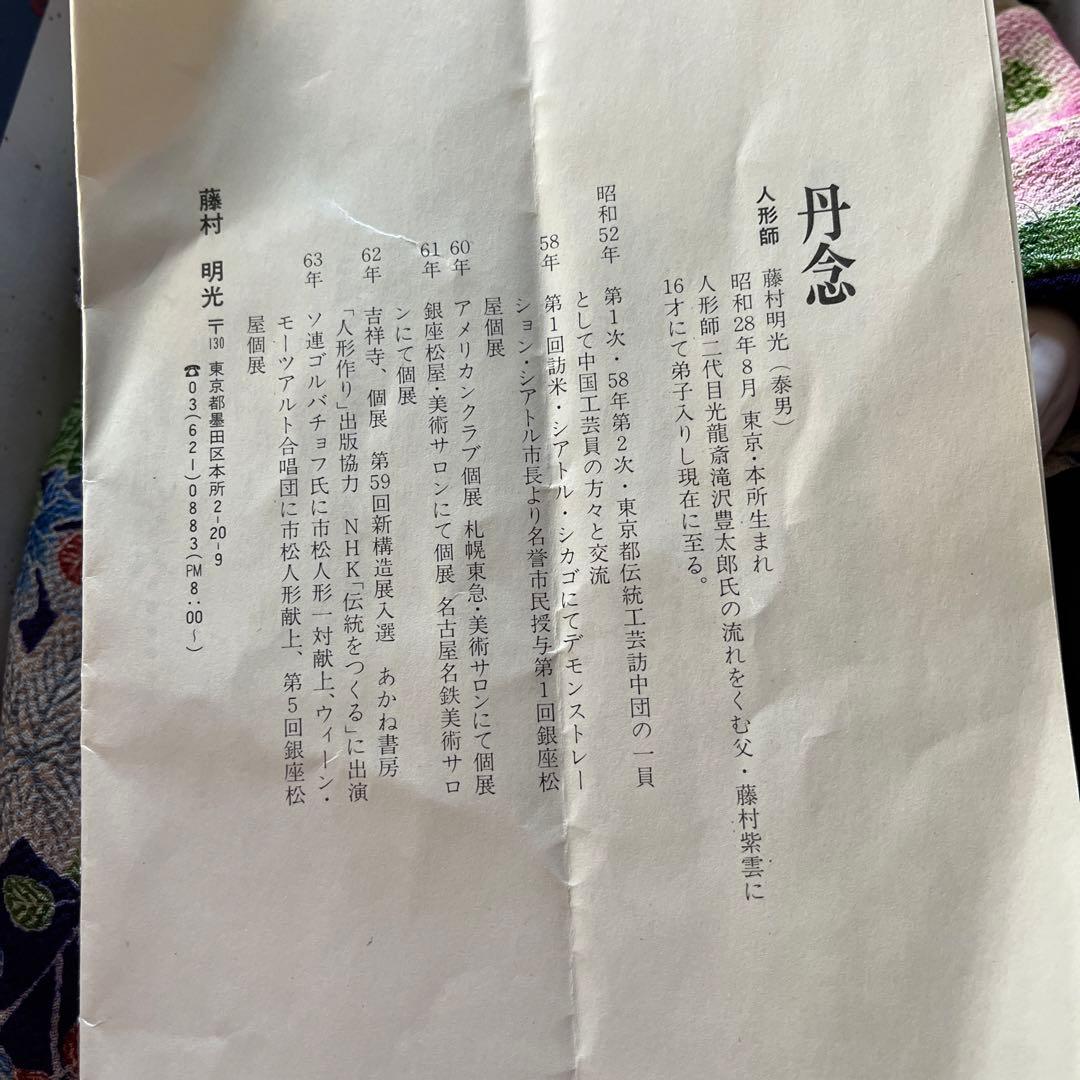 丹念
人形師　藤村明光（泰男）
昭和28年8月　東京・本所生まれ
人形師二代目光龍斎滝沢豊太郎氏の流れをくむ父・藤村紫雲に
16才にて弟子入りし現在に至る。
昭和52年　第1次・58年第2次・東京都伝統工芸訪中団の一員
として中国工芸員の方々と交流
58年　第1回訪米・シアトル・シカゴにてデモンストレー
ション・シアトル市長より名誉市民授与第1回銀座松
屋個展
60年　アメリカンクラブ個展　札幌東急・美術サロンにて個展
61年　銀座松屋・美術サロンにて個展　名古屋名鉄美術サロ
ンにて個展
62年　吉祥寺、個展　第59回新構造展入選　あかね書房
「人形作り」出版協力　NHK「伝統をつくる」に出演
63年　ソ連ゴルバチョフ氏に市松人形一対献上、ウィーン・
モーツアルト合唱団に市松人形献上、第5回銀座松
屋個展
藤村　明光　〒130　東京都墨田区本所2-20-9
☎03(621)0883(PM8:00〜)